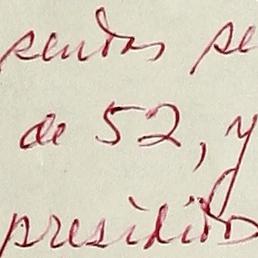 sentas se
de 52, y
presidido